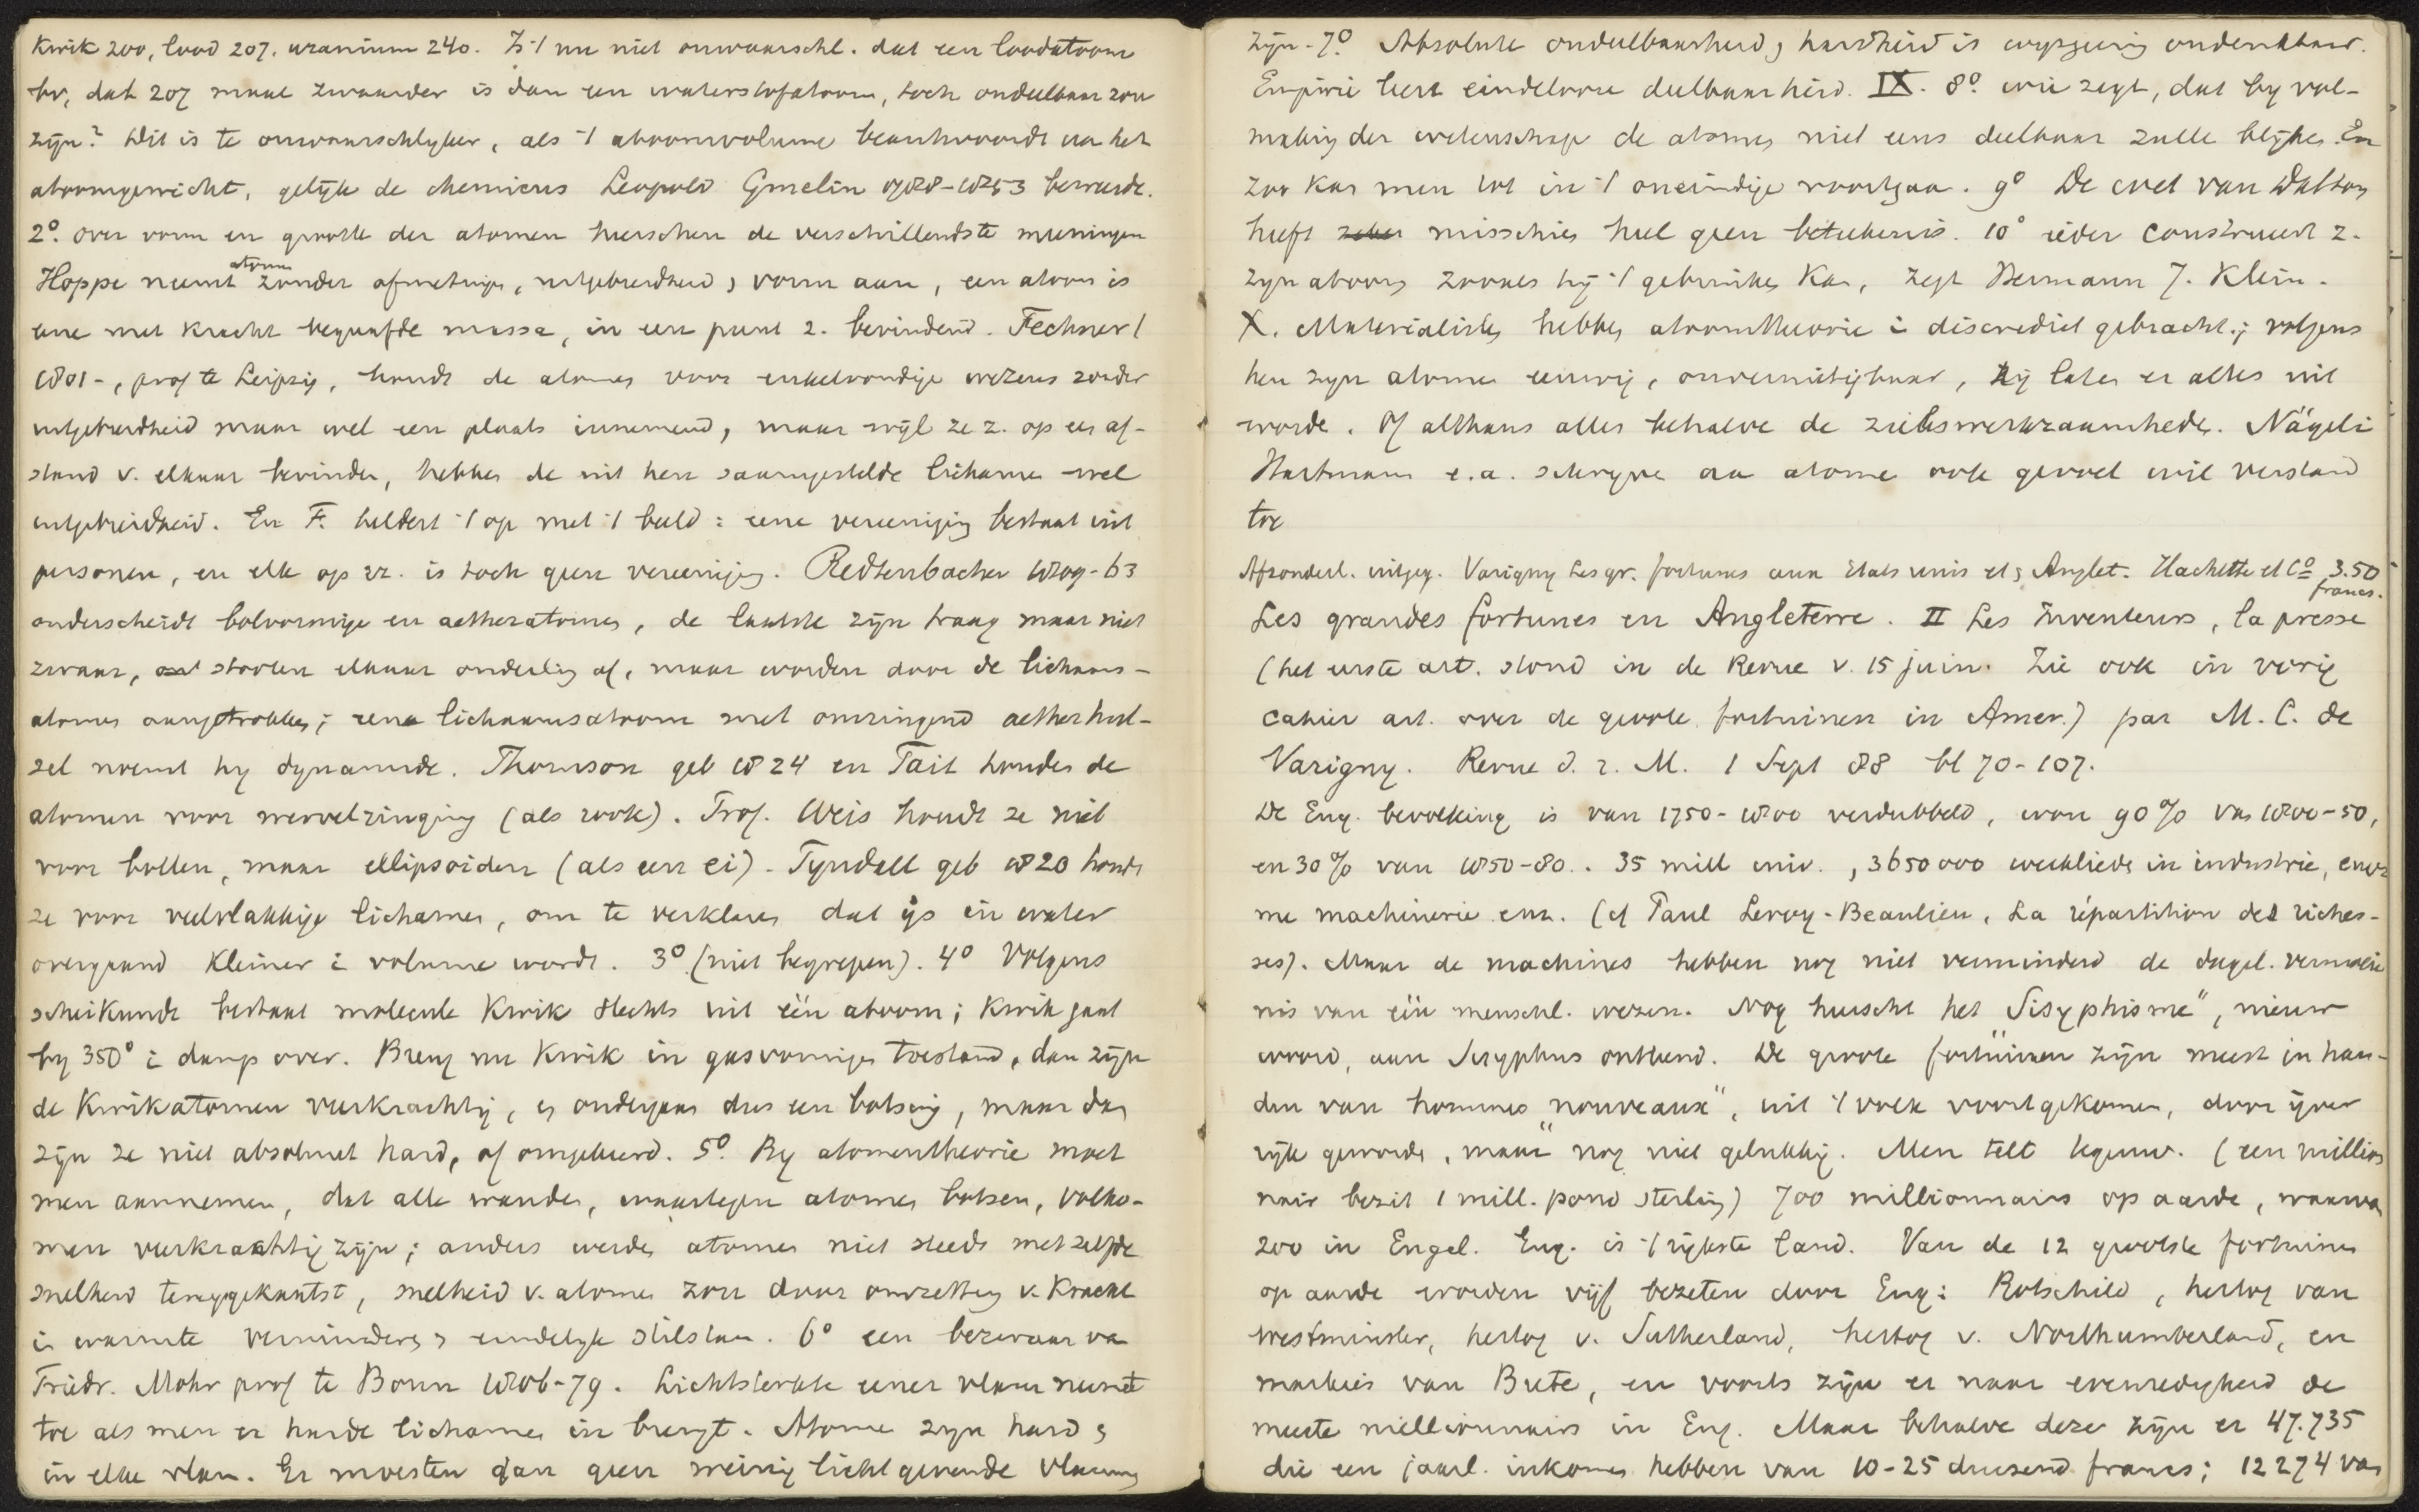 Kwik 200, lood 207. uranium 240. Is 't nu niet onwaarschl. dat een loodatoom
bv, dat 207 maal zwaarder is dan een waterstofatoom, toch ondeelbaar zou
zijn? Dit is te onwaarschlyker, als 't atoomvolume beantwoordt aan het
atoomgewicht, gelijk de chemicus Leopold Gmelin 1788-1853 beweerde.
2º. over vorm en grootte der atomen heerschen de verschillendste meeningen
Hoppe neemt atomen zonder afmetingen, uitgebreidheid, vorm aan, een atoom is
eene met kracht begaafde massa, in een punt z. bevindend. Fechner (
1801-, prof te Leipzig, houdt de atomen voor enkelvoudige wezens zonder
uitgebreidheid maar wel een plaats innemend, maar wijl ze z. op een af-
stand v. elkaar bevinden, hebben de uit hen saamgestelde lichamen wel
uitgebreidheid. En F. heldert 't op met 't beeld: eene vereeniging bestaat uit
personen, en elk op zz. is toch geen vereeniging. Redtenbacher 1809-63
onderscheidt bolvormige en aetheratomen, de laatste zijn traag maar niet
zwaar, stooten elkaar onderling af, maar worden door de lichaams-
atomen aangetrokken; eene lichaamsatoom met omringend aetherhul-
sel noemt hy dynamide. Thomson geb 1824 en Tait houden de
atomen voor wervelringing (als rook). Prof. Weis houdt ze niet
voor bollen, maar ellipsoiden (als een ei). Tyndall geb 1820 houdt
ze voor veelvlakkige lichamen, om te verklaren dat ijs in water
overgaand kleiner i volume wordt. 3º (niet begrepen). 4º Volgens
scheikunde bestaat molecule Kwik slechts uit één atoom; Kwik gaat
by 350º i damp over. Breng nu Kwik in gasvormigen toestand, dan zijn
de Kwikatomen veerkrachtig, en ondergaan dus een botsing, maar dan
zijn ze niet absoluut hard, of omgekeerd. 5º. By atomentheorie moet
men aannemen, dat alle wanden, waartegen atomen botsen, volko-
men veerkrachtig zijn; anders werden atomen niet steeds met zelfde
snelheid teruggekaatst, snelheid v. atomen zou door omzetting v. Kracht
in warmte verminderen, eindelyk stilstaan. 6º een bezwaar van
Friedr. Mohr prof te Bonn 1806-79. Lichtsterkte eener vlam neemt
toe als men er harde lichamen in brengt. Atomen zyn hard &
in elke vlam. Er moesten dan geen weinig lichtgevende vlammen
zijn. 7º. Absolute ondeelbaarheid, hardheid is wysgeerig ondenkbaar.
Empirie leert eindelooze deelbaarheid. IX. 8º. wie zegt, dat by vol-
making der wetenschap de atomen niet eens deelbaar zullen blijken. En
zoo kan men tot in 't oneindige voortgaan. 9º De wet van Dalton
heeft misschien heel geen beteekenis. 10º ieder construeert z.
zyn atoom zooals hij 't gebruiken kan, zegt Hermann J. Klein.
X. Materialisten hebben atoomtheorie i discrediet gebracht; volgens
hen zyn atomen eeuwig, onvernietigbaar, zij laten er alles uit
worden. Of althans alles behalve de zielswerkzaamheden. Nägeli
Hartmann e.a. schryven aan atomen ook gevoel wil verstand
toe
Afzonderl. uitgeg. Varigny Les gr. fortunes aux Etats unis et en Anglet. Hachette et Cº 3.50
francs.
Les grandes fortunes en Angleterre. II Les Inventeurs, la presse
(het eerste art. stond in de Revue v. 15 juin. Zie ook in vorig
cahier art. over de groote fortuinen in Amer.) par M. C. de
Varigny. Revue d. 2. M. 1 Sept 88 bl 70-107.
De Eng. bevolking is van 1750-1800 verdubbeld, won 90% van 1800-50,
en 30% van 1850-80. 35 mill inw., 3650000 werklieden in industrie, enor-
me machinerie enz. (cf Paul Leroy-Beaulieu, La répartition des riches-
ses). Maar de machines hebben nog niet verminderd de dagel. vermoeie
nis van één menschl. wezen. Nog heerscht het "Sisyphisme", nieuw
woord, aan Sisyphus ontleend. De groote fortuinen zijn meest in han-
den van hommes "nouveaux", uit 't volk voortgekomen, door ijver
rijk geworden, maar nog niet gelukkig. Men telt tegenw. (een million
nair bezit 1 mill. pond sterling) 700 millionnairs op aarde, waarvan
200 in Engel. Eng. is 't rijkste land. Van de 12 grootste fortuinen
op aarde worden vijf bezeten door Eng: Rotschild, hertog van
Westminster, hertog v. Sutherland, hertog v. Northumberland, en
markies van Bute, en voorts zijn er naar evenredigheid de
meeste millionnairs in Eng. Maar behalve deze zijn er 47.735
die een jaarl. inkomen hebben van 10-25 duizend francs; 12274 van